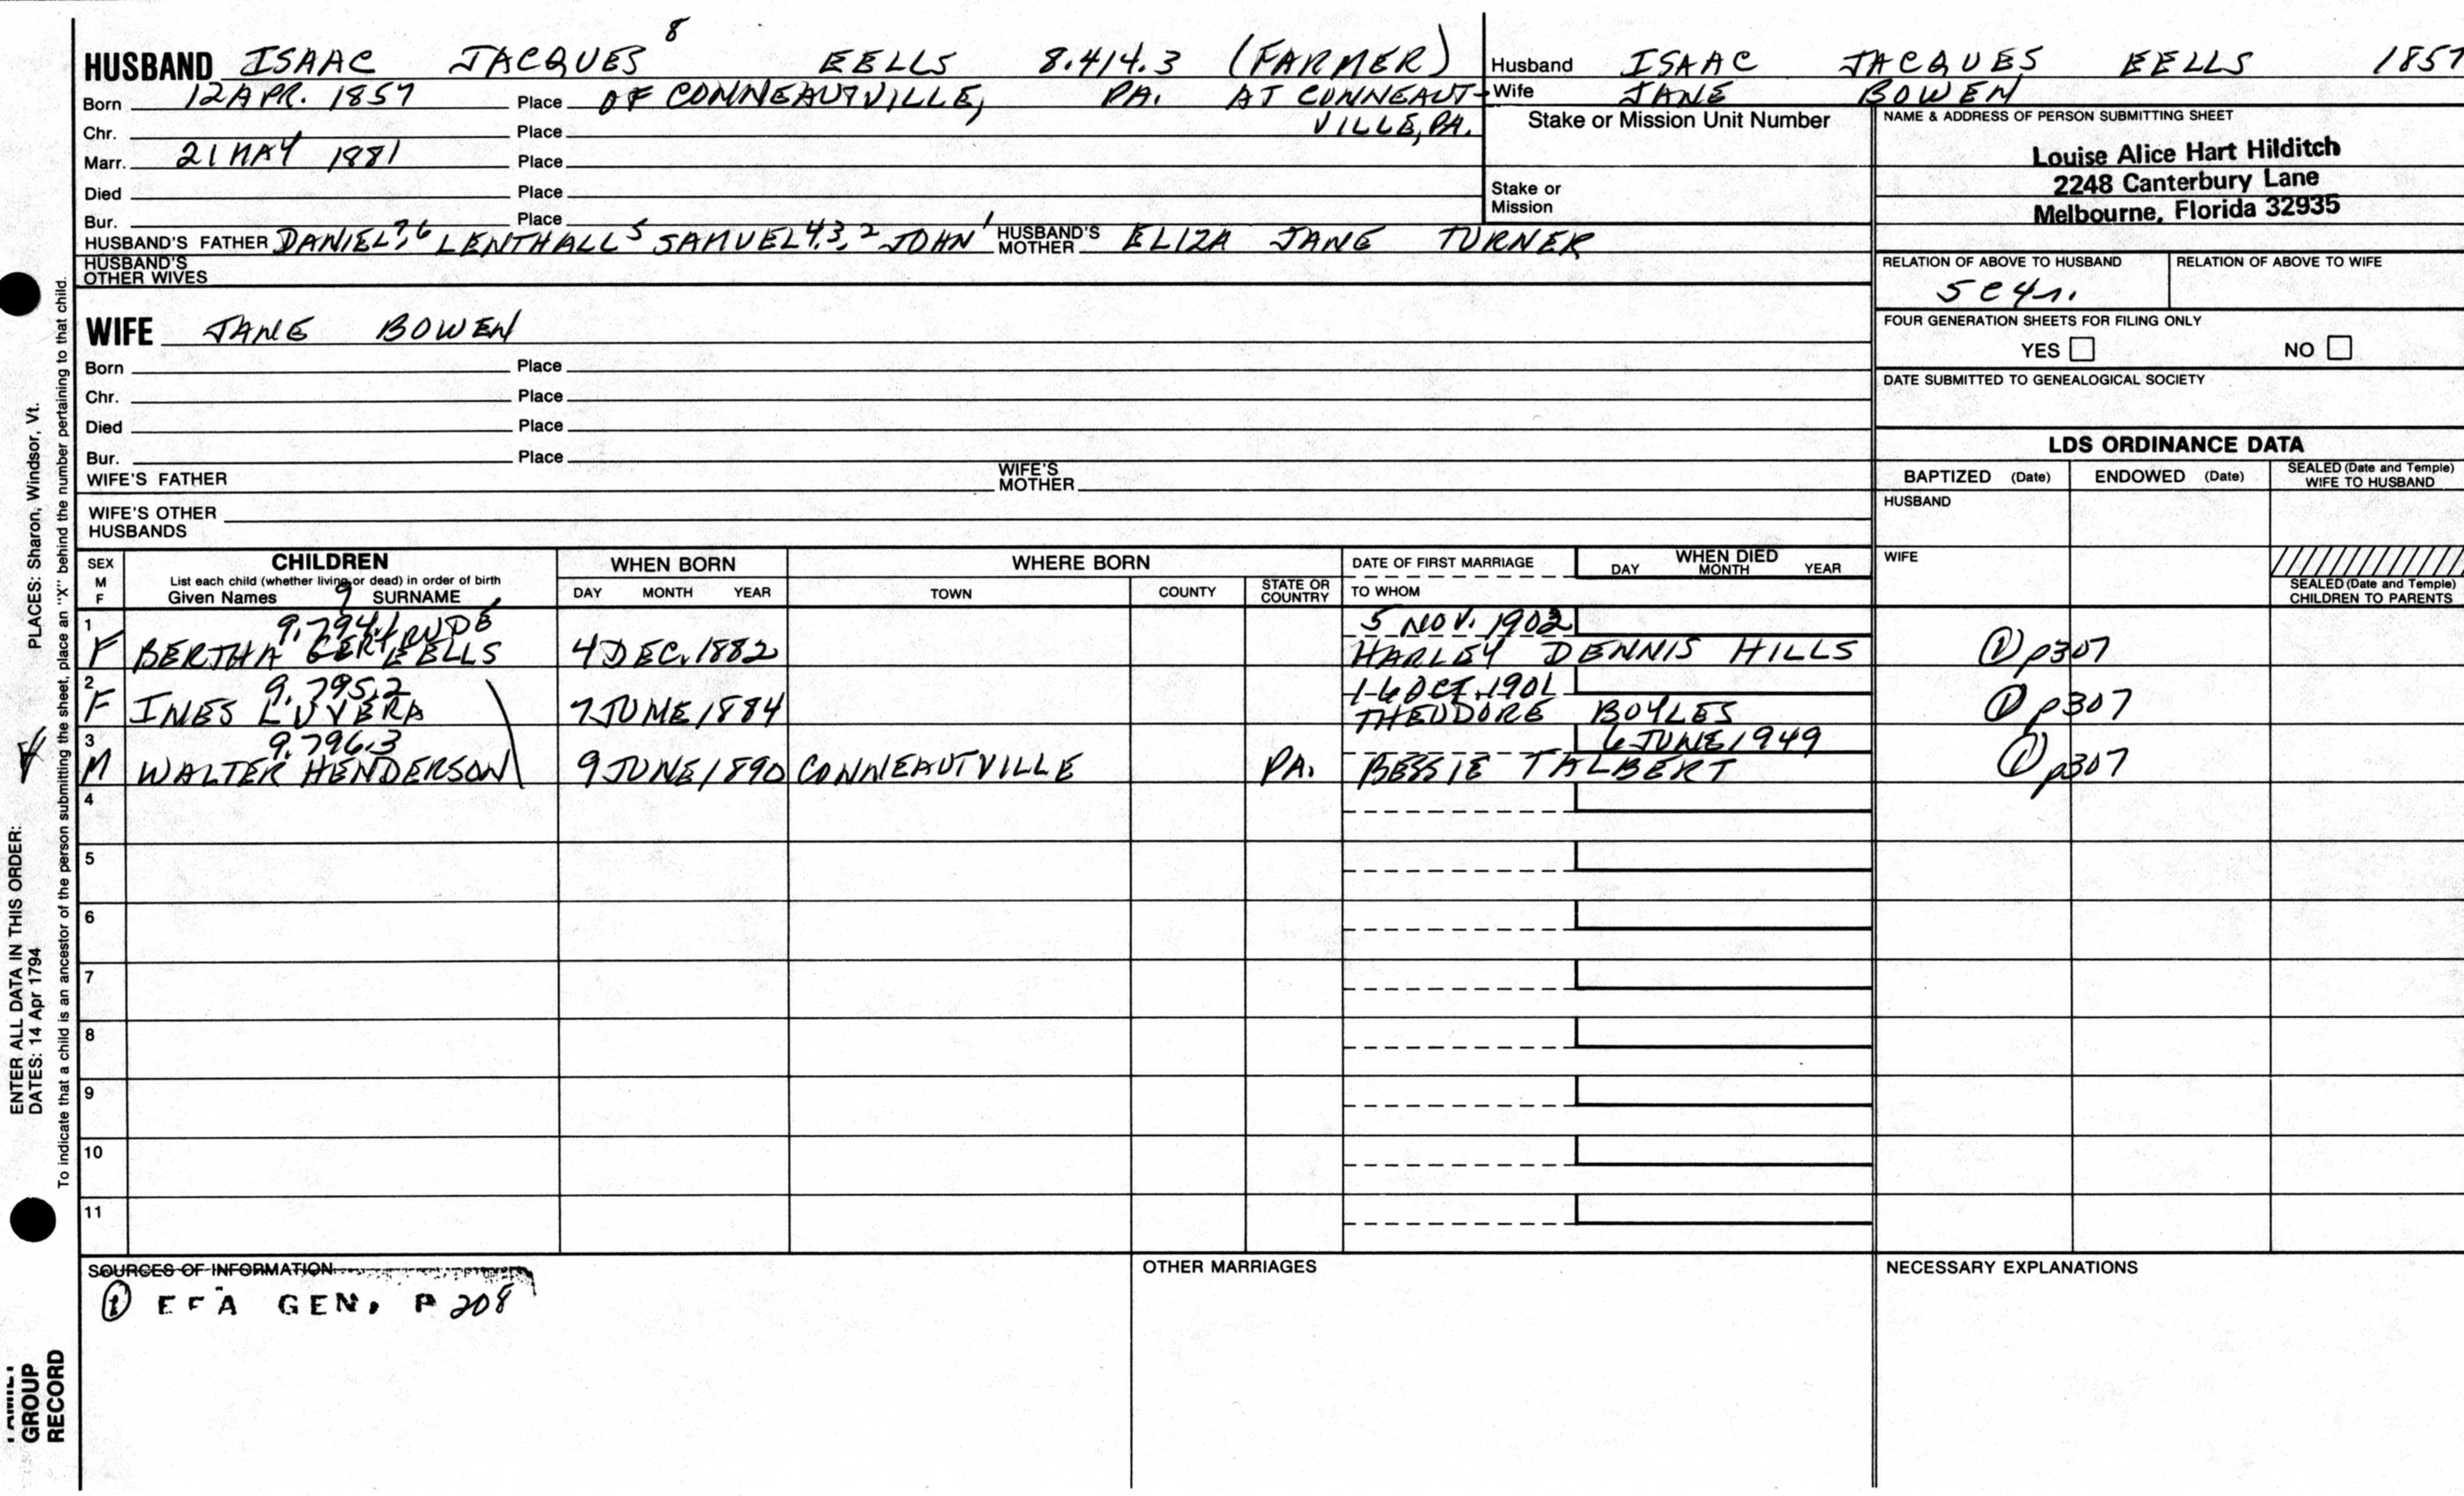 HUSBAND ISAAC JACQUES 8 EELLS 8.414.3 (FARMER)
Born 12 APR. 1857 Place OF CONNEAUTVILLE, PA. AT CONNEAUT-
VILLE, PA.
Chr. Place
Marr. 21 MAY 1881 Place
Died Place
Bur. Place
HUSBAND'S FATHER DANIEL 7,6 LENTHALL 5 SAMUEL 4,3,2 JOHN 1 HUSBAND'S MOTHER ELIZA JANE TURNER
HUSBAND'S OTHER WIVES
Husband ISAAC JACQUES EELLS 1857
Wife JANE BOWEN
Stake or Mission Unit Number
Stake or Mission
NAME & ADDRESS OF PERSON SUBMITTING SHEET
Louise Alice Hart Hilditch
2248 Canterbury Lane
Melbourne, Florida 32935
RELATION OF ABOVE TO HUSBAND RELATION OF ABOVE TO WIFE
5C4r.
FOUR GENERATION SHEETS FOR FILING ONLY
YES NO
DATE SUBMITTED TO GENEALOGICAL SOCIETY
WIFE JANE BOWEN
Born Place
Chr. Place
Died Place
Bur. Place
WIFE'S FATHER WIFE'S MOTHER
WIFE'S OTHER HUSBANDS
LDS ORDINANCE DATA
BAPTIZED (Date) ENDOWED (Date) SEALED (Date and Temple) WIFE TO HUSBAND
HUSBAND
WIFE
SEALED (Date and Temple) CHILDREN TO PARENTS
SEX M F CHILDREN WHEN BORN WHERE BORN DATE OF FIRST MARRIAGE WHEN DIED
List each child (whether living or dead) in order of birth
Given Names 9 SURNAME DAY MONTH YEAR TOWN COUNTY STATE OR COUNTRY TO WHOM DAY MONTH YEAR
1 9.794.1 5 NOV. 1902
F BERTHA GERTRUDE EELLS 4 DEC. 1882 HARLEY DENNIS HILLS ① p307
2 9.795.2 16 OCT. 1901
F INES LUVERA 7 JUNE 1884 THEODORE BOYLES ① p307
3 9.796.3 6 JUNE 1949
M WALTER HENDERSON 9 JUNE 1890 CONNEAUTVILLE PA. BESSIE TALBERT ① p307
4
5
6
7
8
9
10
11
SOURCES OF INFORMATION OTHER MARRIAGES NECESSARY EXPLANATIONS
① EFA GEN. P 208
ENTER ALL DATA IN THIS ORDER:
DATES: 14 Apr 1794 PLACES: Sharon, Windsor, Vt.
To indicate that a child is an ancestor of the person submitting the sheet, place an "X" behind the number pertaining to that child.
FAMILY GROUP RECORD